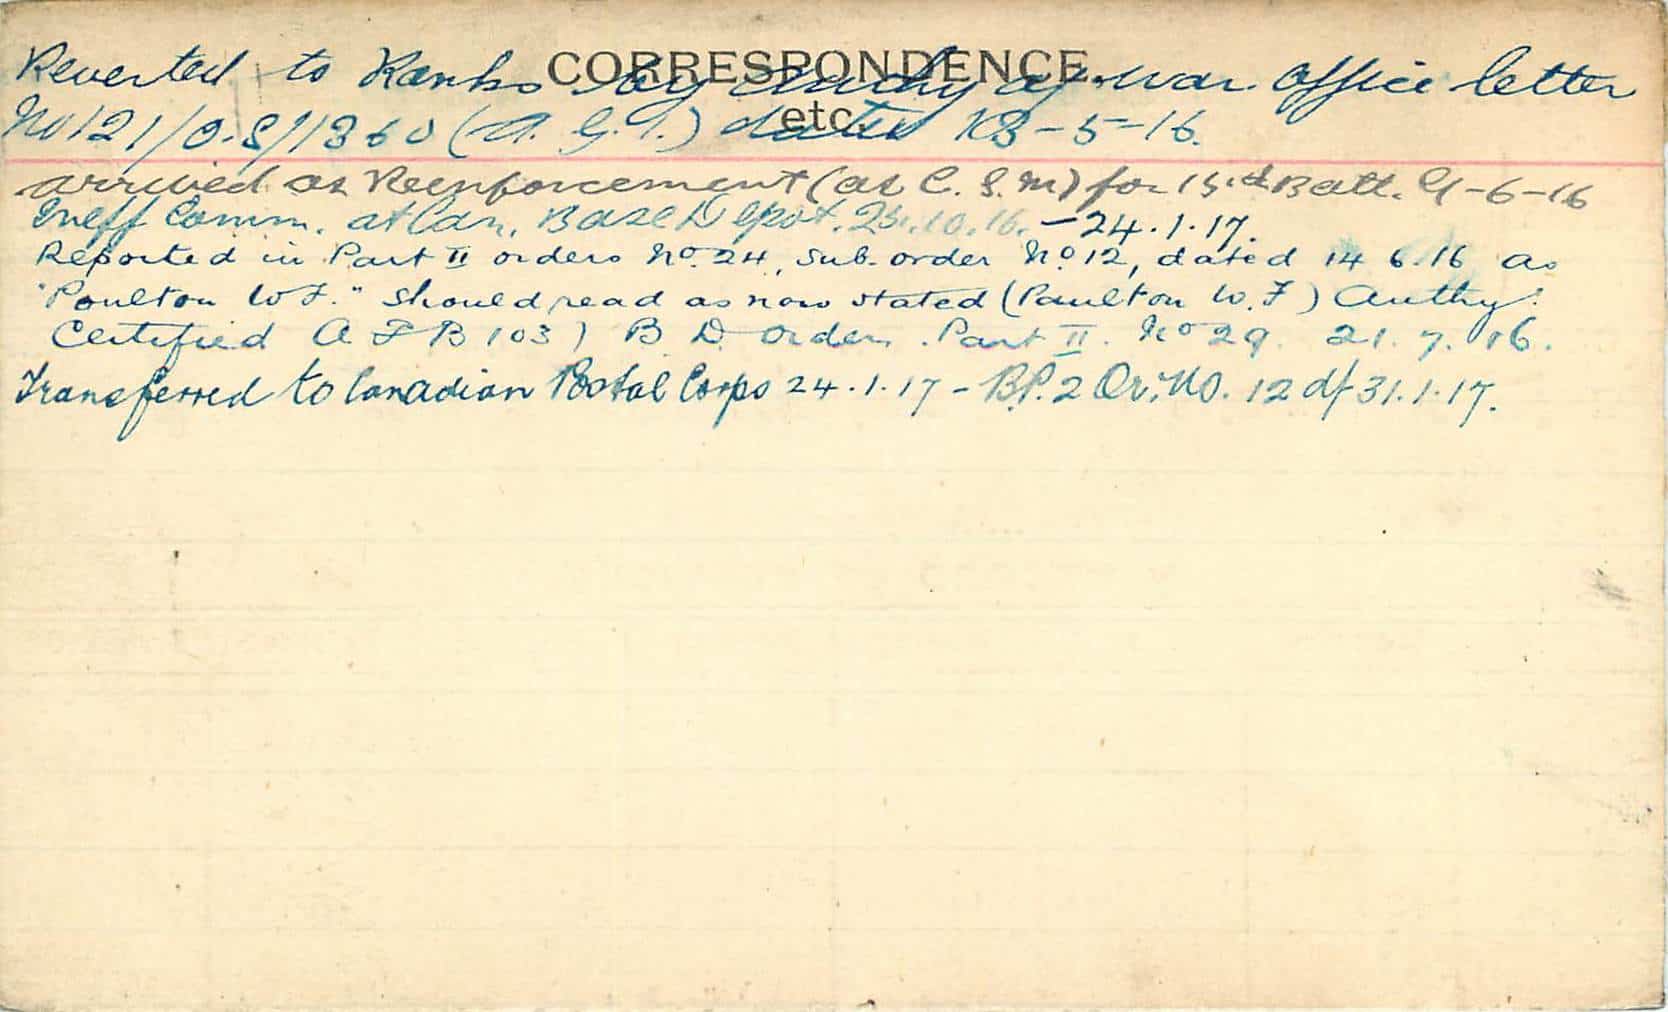 CORRESPONDENCE
etc.
Reverted to Ranks by Authy of War Office letter
No 121/O.S/1360 (A. G. 1.) dated 13-5-16.
arrived as Reenforcement (as C. S. M) for 13rd Batt. 9-6-16
Ineff Comm. at Can. Base Depot. 23.10.16. - 24.1.17.
Reported in Part II orders No. 24, sub-order No 12, dated 14 6.16 as
"Poulton W F." should read as now stated (Paulton W. F) Authy:
Certified A F B 103) B D Orders. Part II. No 29. 21. 7. 16.
Transferred to Canadian Postal Corps 24.1.17 - B.P. 2 Or. No. 12 df 31.1.17.